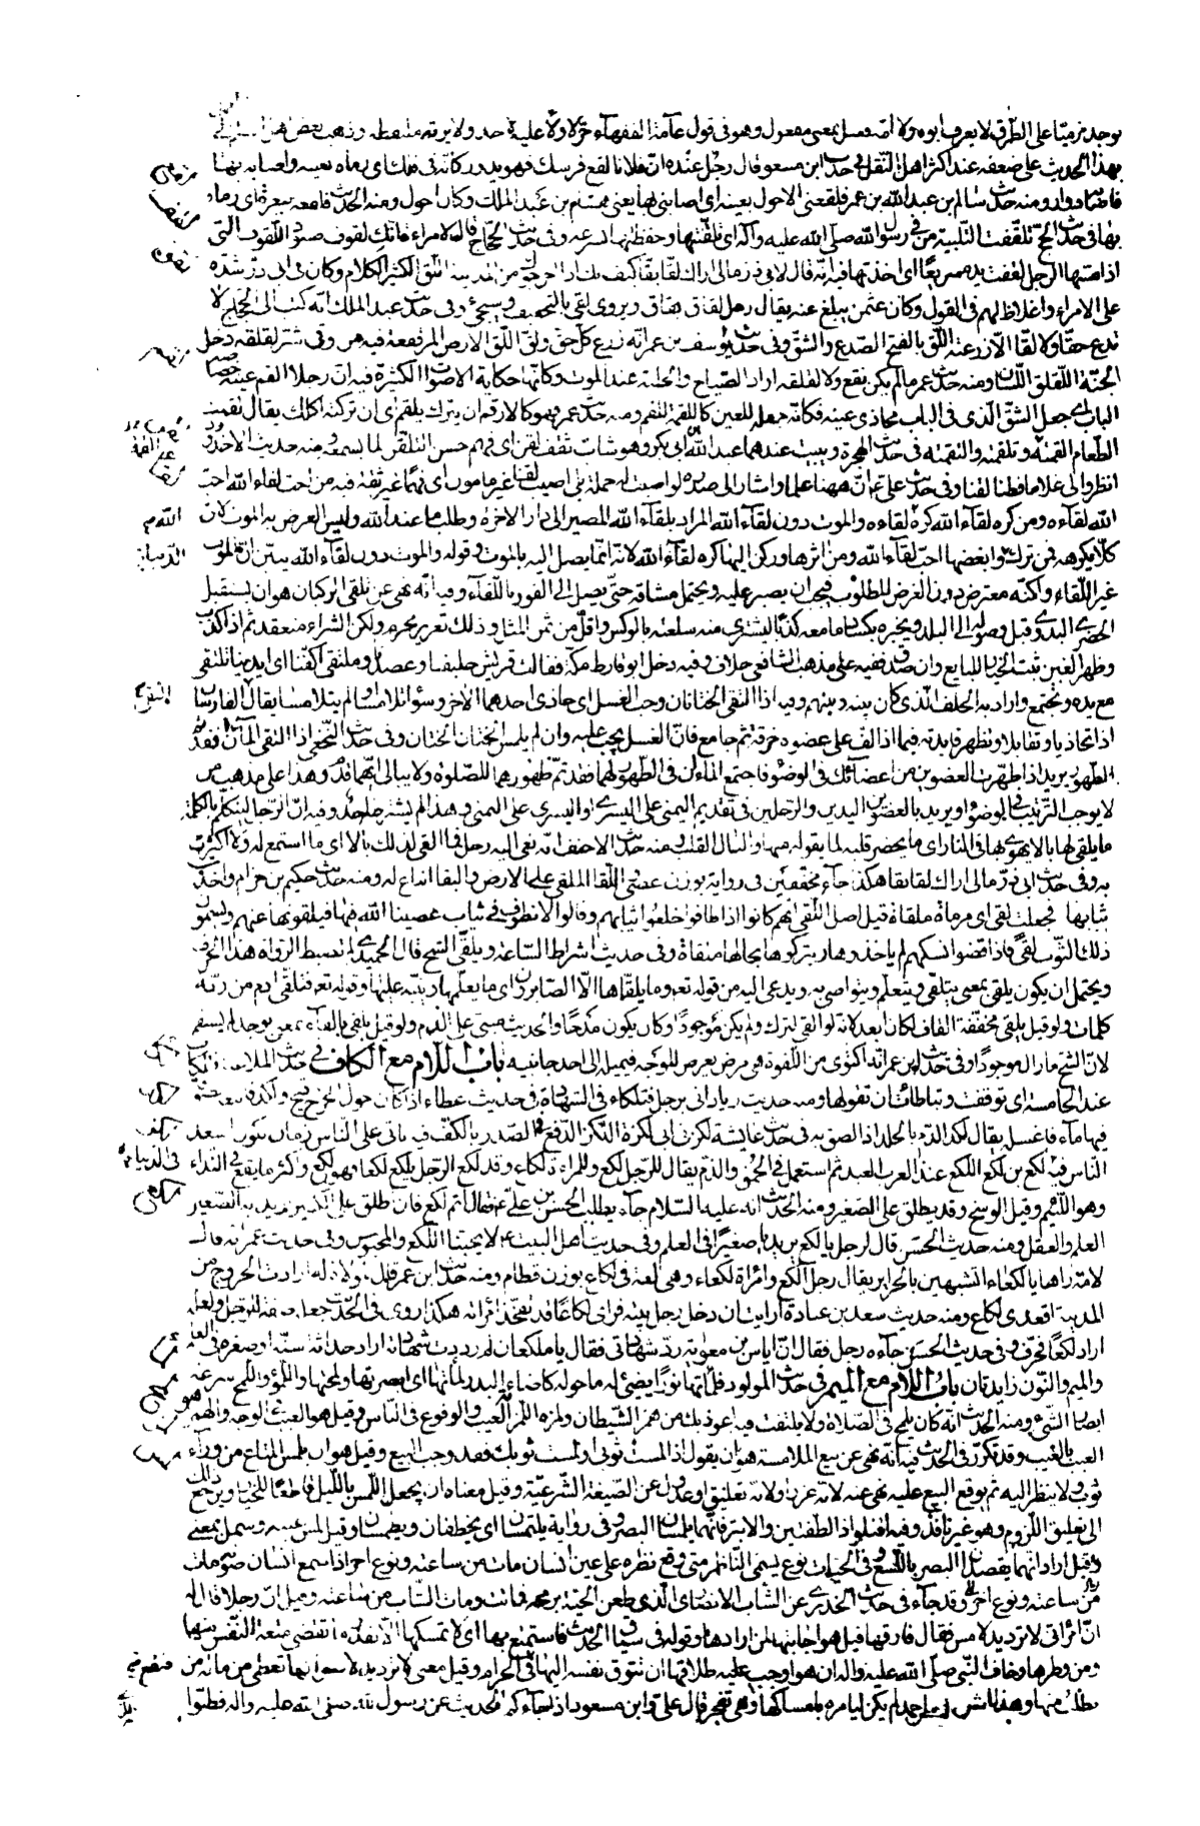 يوجد مرميّا على الطرق لا يعرف ابوه ولا امّه فعيل بمعنى مفعول وهو فى قول عامّة الفقهاء حرّ لا ولاء عليه لاحد ولا يرثه ملتقطه وذهب بعض
بهذا الحديث على ضعفه عند اكثر اهل النقل فى حديث ابن مسعود قال رجل عنده انّ فلانا لقع فرسك فهو يدور كانّه فى فلك اى رماه بعينه واصابه بها
فاصابه دوار ومنه حديث سالم بن عبدالله بن عمر فلقعنى الاحول بعينه اى اصابنى بها يعنى هشام بن عبد الملك وكان احول ومنه الحديث فلقعه ببعرة اى رماه
بها فى حديث الحج تلقّفت التلبية من فى رسول الله صلى الله عليه وآله اى تلقّنتها وحفظتها بسرعة وفى حديث الحجّاج قال لامراة انّك لقوف صيود اللقوف التى
اذا مسّها الرجل لقفت يده سريعًا اى اخذتها فيه انّه قال لابى ذر مالى اراك لقّا بقّا كيف بك اذا اخرجوك من المدينة اللّق الكثير الكلام وكان فى ابى ذر شدّة
على الامراء واغلاظ لهم فى القول وكان عثمن يبلغ عنه يقال رجل لقاق بقاق ويروى لقى بالتخفيف وسيجئ وفى حديث عبد الملك انّه كتب الى الحجاج لا
تدع خقّا ولا لقّا الّا زرعته اللّق بالفتح الصّدع والشقّ وفى حديث يوسف بن عمر انّه زرع كل خق ولق اللّق الارض المرتفعة فيه من وقى شر لقلقه دخل
الجنّة اللّقلق اللّسان ومنه حديث عمر مالم يكن نقع ولا لقلقة اراد الصّياح والجلبة عند الموت وكانّها حكاية الاصوات الكثيرة فيه انّ رجلا القم عينه خصاصة
الباب اى جعل الشقّ الّذى فى الباب محاذى عينه فكانّه جعله للعين كاللّقمة للفم ومنه حديث عمر فهو كالارقم ان يترك يلقم اى ان تركته اكلك يقال لقمت
الطعام القمه وتلقمته والتقمته فى حديث الهجرة ويبيت عندهما عبد الله بن ابى بكر وهو شاب ثقف لقن اى فهم حسن التلقّن لما يسمعه ومنه حديث الاخدود
انظروا لى غلاما فطنا لقنا وفى حديث على ع انّ ههنا علما واشار الى صدره لو اصبت له حملة بلى اصيب لقنا غير مامون اى فهما غير ثقة فيه من احب لقاء الله احب
الله لقاءه ومن كره لقاء الله كره الله لقاءه والموت دون لقاء الله المراد بلقاء الله المصير الى دار الاخرة وطلب ما عند الله وليس الغرض به الموت لان
كلّا يكرهه فمن ترك الدنيا وابغضها احبّ لقاء الله ومن اثرها وركن اليها كره لقاء الله لانّه انّما يصل اليه بالموت وقوله والموت دون لقاء الله يبيّن انّ الموت
غير اللّقاء ولكنّه معترض دون الغرض المطلوب فيجب ان يصبر عليه ويحتمل مشاقه حتّى يصل الى الفوز باللّقاء وفيه انّه نهى عن تلقى الركبان هو ان يستقبل
الحضرى البدوى قبل وصوله الى البلد ويخبره بكساد ما معه كذبًا ليشترى منه سلعته بالوكس واقلّ من ثمن المثل وذلك تغرير محرم ولكن الشراء منعقد ثم اذا كذب
وظهر الغبن ثبت الخيار للبايع وان صدق ففيه على مذهب الشافعى خلاف وفيه دخل ابو قارظ مكة فقالت قريش حليفنا وعضدنا وملتقى اكفّنا اى ايدينا تلتقى
مع يده وتجتمع واراد به الحلف الّذى كان بينه وبينهم وفيه اذا التقى الختانان وجب الغسل اى حاذى احدهما الاخر وسواء تلامسا او لم يتلامسا يقال التقى الفارسان
اذا تحاذيا وتقابلا وتظهر فايدته فيما اذا لف على عضوه خرقة ثم جامع فانّ الغسل يجب عليه وان لم يلمس الختان الختان وفى حديث النّخعى اذا التقى الماءان فقد تم
الطهور يريد اذا طهّرت العضوين من اعضائك فى الوضوء فاجتمع الماءان فى الطهور لهما فقد تمّ طهورهما للصّلوة ولا يبالى ايّهما قدّم وهذا على مذهب من
لا يوجب الترتيب فى الوضوء او يريد بالعضوين اليدين والرّجلين فى تقديم اليمنى على اليسرى او اليسرى على اليمنى وهذا لم يشترطه احد وفيه انّ الرّجل ليتكلّم بالكلمة
ما يلقى لها بالا يهوى بها فى النار اى ما يحضر قلبه لما يقوله منها والبال القلب ومنه حديث الاحنف انّه نعى اليه رجل فما القى لذلك بالا اى ما استمع له ولا اكترث
به وفى حديث ابى ذرّ مالى اراك لقا بقا هكذا جاء مخفّفين فى رواية بوزن عصى واللّقا الملقى على الارض والبقا اتباع له ومنه حديث حكيم بن حزام واخذت
ثيابها فجعلت لقى اى مرماة ملقاة قيل اصل اللّقى انّهم كانوا اذا طافوا خلعوا ثيابهم وقالوا لا نطوف فى ثياب عصينا الله فيها فيلقونها عنهم ويسمّون
ذلك الثّوب لقى فاذا قضوا نسكهم لم ياخذوها وتركوها بحالها ملقاة وفى حديث اشراط السّاعة ويلقى الشح قال الحميدى لم تضبط الرواة هذا الحرف
ويحتمل ان يكون يلقى بمعنى يتلقّى ويتعلّم ويتواصى به ويدعى اليه من قوله تع وما يلقّاها الّا الصّابرون اى ما يعلّمها وينبّه عليها وقوله تع فتلقّى ادم من ربّه
كلمات ولو قيل يلقى مخفّفة القاف لكان ابعد لانّه لو القى لترك ولم يكن موجودًا وكان يكون مدحًا والحديث مبنى على الذم ولو قيل يلفى بالفاء بمعنى يوجد لم يستقم
لانّ الشح مازال موجودًا وفى حديث ابن عمر انّه اكتوى من اللّقوة هى مرض يعرض للوجه فيميله الى احد جانبيه باب اللام مع الكاف فى حديث الملاعنة فتلكأت
عند الخامسة اى توقفت وتباطات ان تقولها ومنه حديث زياد اتى برجل فتلكاء فى الشهادة فى حديث عطاء اذا كان حول الجرح قيح ولكد فاتبعه بصوفة
فيها ماء فاغسله يقال لكد الدّم بالجلد اذا لصق به فى حديث عايشة لكزنى ابى لكزة اللّكز الدّفع فى الصّدر بالكفّ فيه ياتى على النّاس زمان يكون اسعد
النّاس فيه لكع بن لكع اللّكع عند العرب العبد ثم استعمل فى الحمق والذّم يقال للرّجل لكع وللمراة لكاع وقد لكع الرّجل يلكع لكعا فهو الكع واكثر ما يقع فى النّداء
وهو اللّئيم وقيل الوسخ وقد يطلق على الصّغير ومنه الحديث انّه عليه السّلام جاء يطلب الحسن بن علىّ ع فقال اثم لكع فان اطلق على الكبير اريد به الصّغير
العلم والعقل ومنه حديث الحسن قال لرجل يا لكع يريد يا صغيرًا فى العلم وفى حديث اهل البيت ع لا يحبّنا اللّكع والمحبوس وفى حديث عمر انّه قال
لامة راها يا لكعاء اتتشبهين بالحراير يقال رجل الكع وامراة لكعاء وهى لغة فى لكاع بوزن قطام ومنه حديث ابن عمر قال لمولاة له ارادت الخروج من
المدينة اقعدى لكاع ومنه حديث سعد بن عبادة ارايت ان دخل رجل بيته فراى لكاعًا قد تفخّذ امراته هكذا روى فى الحديث جعله صفة للرّجل ولعلّه
اراد لكعًا فحرّف وفى حديث الحسن جاءه رجل فقال انّ اياس بن معاوية ردّ شهادتى فقال يا ملكعان لم رددت شهادته اراد حداثة سنّه او صغره فى العلم
والميم والنّون زايدتان باب اللام مع الميم فى حديث المولود فلمأتها نورًا يضئ له ما حوله كاضاءة البدر لمأتها اى ابصرتها ولمحتها واللّمؤ واللّمح سرعة
ابصار الشئ ومنه الحديث انّه كان يلمح فى الصّلاة ولا يلتفت فيه اعوذ بك من همز الشّيطان ولمزه اللّمز العيب والوقوع فى النّاس وقيل هو العيب فى الوجه والهمز
العيب بالغيب وقد تكرّر فى الحديث فيه انّه نهى عن بيع الملامسة هو ان يقول اذا لمست ثوبى او لمست ثوبك فقد وجب البيع وقيل هو ان يلمس المتاع من وراء
ثوب ولا ينظر اليه ثم يوقع البيع عليه نهى عنه لانّه غرر او لانّه تعليق او عدول عن الصّيغة الشّرعيّة وقيل معناه ان يجعل اللّمس باللّيل قاطعًا للخيار ويرجع ذلك
الى تعليق اللّزوم وهو غير نافذ وفيه اقتلوا ذا الطفيتين والابتر فانّهما يلمسان البصر وفى رواية يلتمسان اى يخطفان ويطمسان وقيل لمس عينه وسمل بمعنى
وقيل اراد انّهما يقصدان البصر باللّسع وفى الحيّات نوع يسمى النّاظر متى وقع نظره على عين انسان مات من ساعته ونوع اخر اذا سمع انسان صوته مات
من ساعته وقد جاء فى حديث الخدرى عن الشاب الانصارى الّذى طعن الحيّة برمحه فماتت ومات الشّاب من ساعته وفيه انّ رجلا قال له
انّ امراتى لا تردّ يد لامس فقال فارقها قيل هو اجابتها لمن ارادها وقوله فى سياق الحديث فاستمتع بها اى لا تمسكها الّا بقدر ما تقضى متعة النّفس منها
ومن وطرها وخاف النّبى صلى الله عليه واله ان هو اوجب عليه طلاقها ان تتوق نفسه اليها فيقع فى الحرام وقيل معنى لا تردّ يد لامس انّها تعطى من ماله من
يطلب منها وهذا اشبه قال احمد لم يكن ليامره بامساكها وهى تفجر قال علىّ وابن مسعود اذا جاءكم الحديث عن رسول الله صلى الله عليه واله فظنّوا